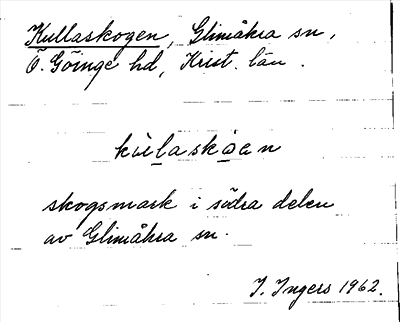 Kullaskogen, Glimåkra sn,
Ö. Göinge hd, Krist. län.
kùlaskꙍen
skogsmark i södra delen
av Glimåkra sn.
I. Ingers 1962.